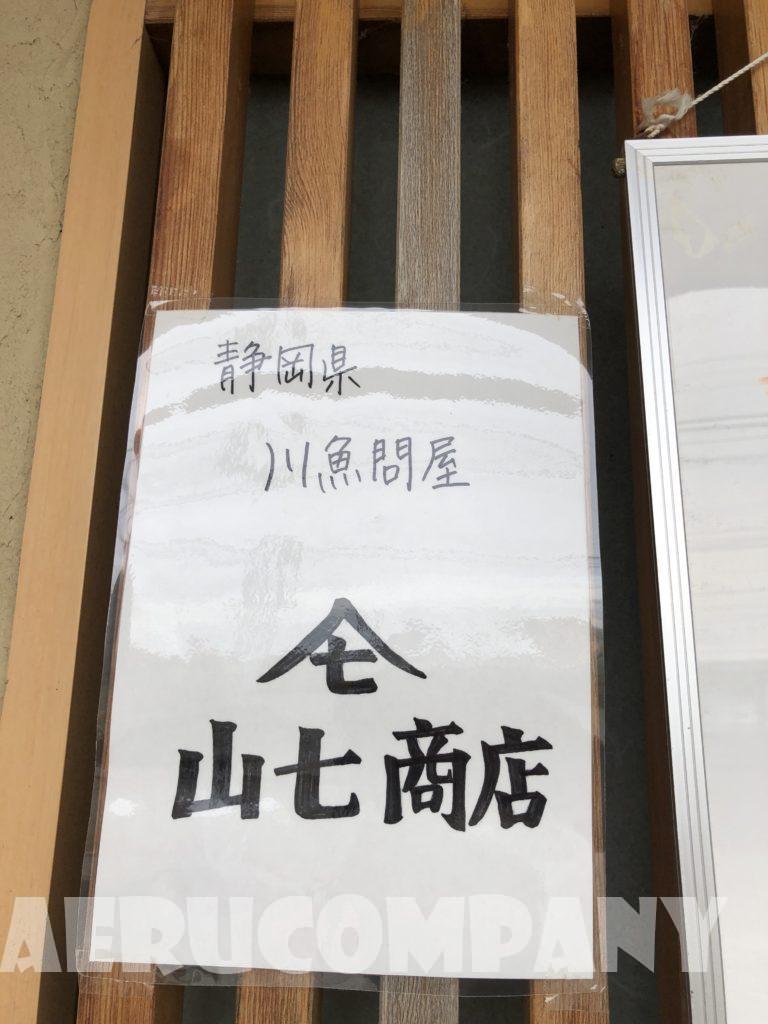 静岡県
川魚問屋
七
山七商店
AERUCOMPANY